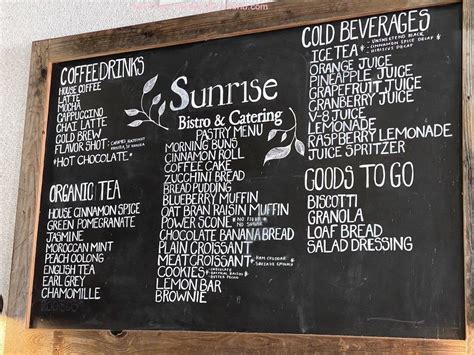 COFFEE DRINKS
HOUSE COFFEE
LATTE
MOCHA
CAPPUCCINO
CHAI LATTE
COLD BREW
FLAVOR SHOT:
*HOT CHOCOLATE*
ORGANIC TEA
HOUSE CINNAMON SPICE
GREEN POMEGRANATE
JASMINE
MOROCCAN MINT
PEACH OOLONG
ENGLISH TEA
EARL GREY
CHAMOMILLE
Sunrise
Bistro & Catering
PASTRY MENU
MORNING BUNS
CINNAMON ROLL
COFFEE CAKE
ZUCCHINI BREAD
BREAD PUDDING
BLUEBERRY MUFFIN
OAT BRAN RAISIN MUFFIN
POWER SCONE *NO FLOUR *NO SUGAR
CHOCOLATE BANANA BREAD
PLAIN CROISSANT
MEAT CROISSANT *HAM CHEDDAR
COOKIES *CHOCOLATE
LEMON BAR
BROWNIE
COLD BEVERAGES
ICE TEA *-UNSWEETENED BLACK -CINNAMON SPICE DECAF -HIBISCUS DECAF
ORANGE JUICE
PINEAPPLE JUICE
GRAPEFRUIT JUICE
CRANBERRY JUICE
V-8 JUICE
LEMONADE
RASPBERRY LEMONADE
JUICE SPRITZER
GOODS TO GO
BISCOTTI
GRANOLA
LOAF BREAD
SALAD DRESSING